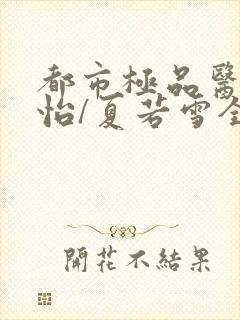 都市極品醫
怡/夏若雪全
開花不結果